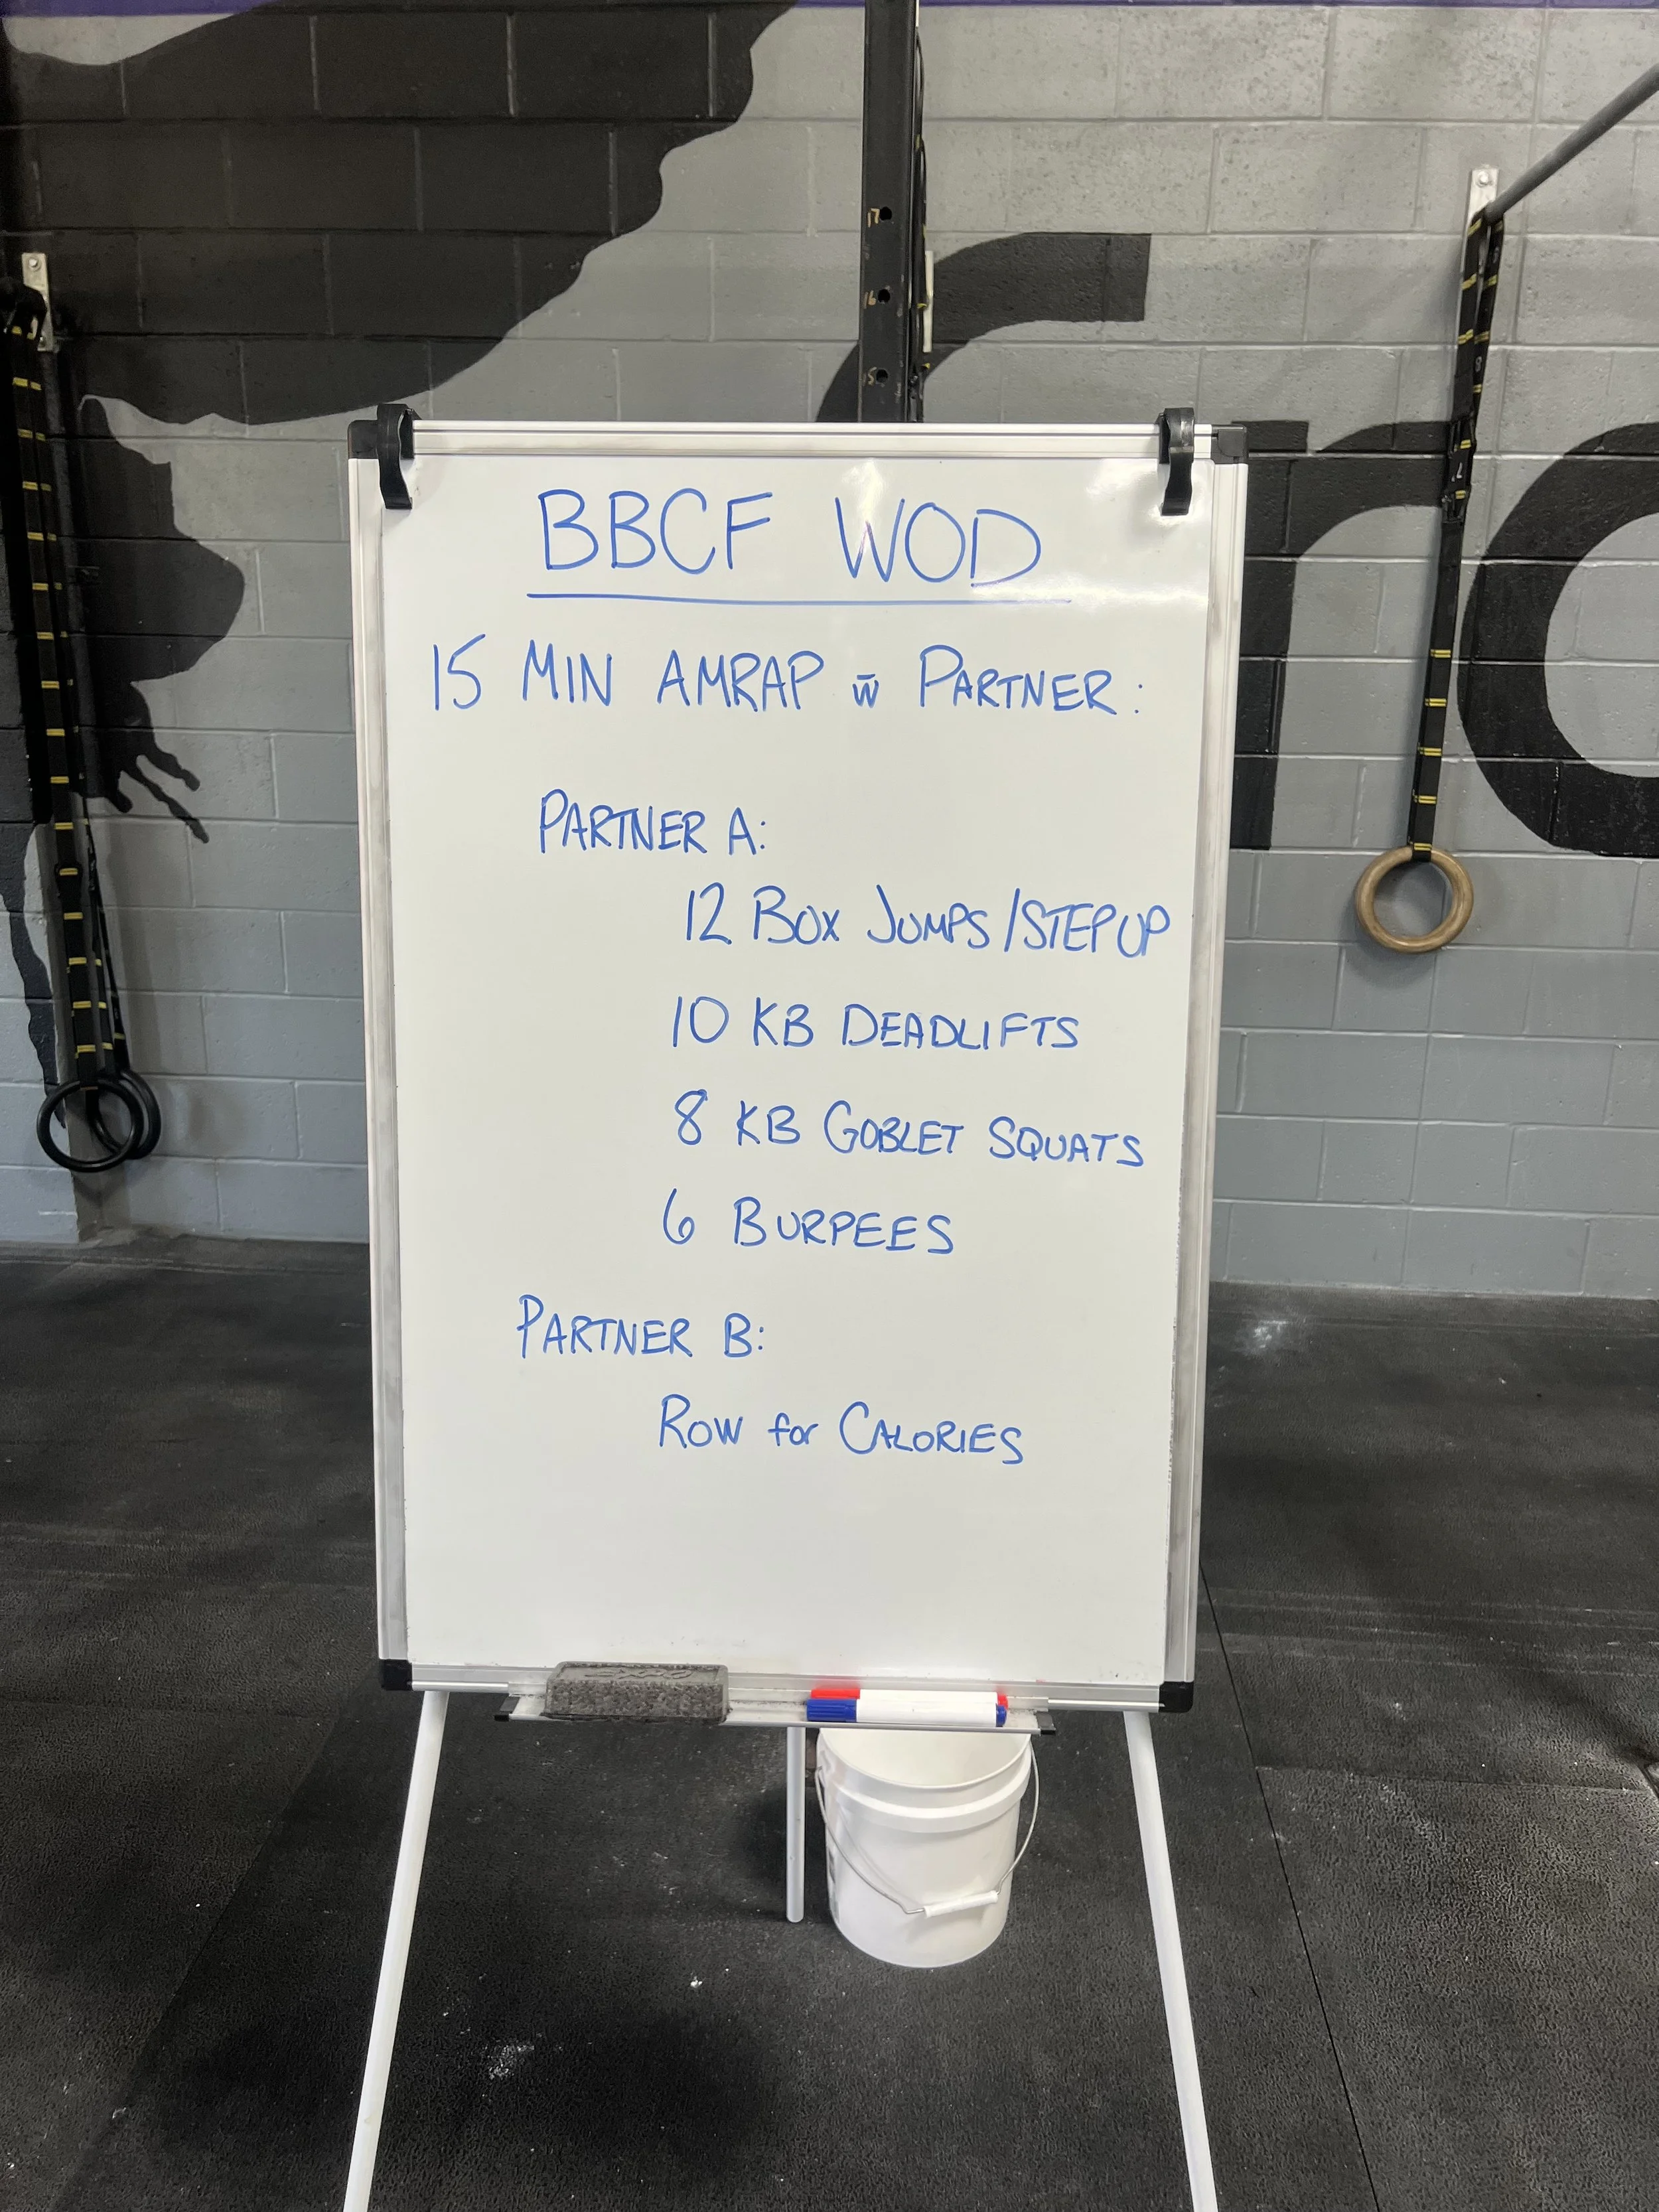 17
16
15
BBCF WOD
15 MIN AMRAP w̄ PARTNER:
PARTNER A:
12 BOX JUMPS/STEP UP
10 KB DEADLIFTS
8 KB GOBLET SQUATS
6 BURPEES
PARTNER B:
ROW for CALORIES
EXPO